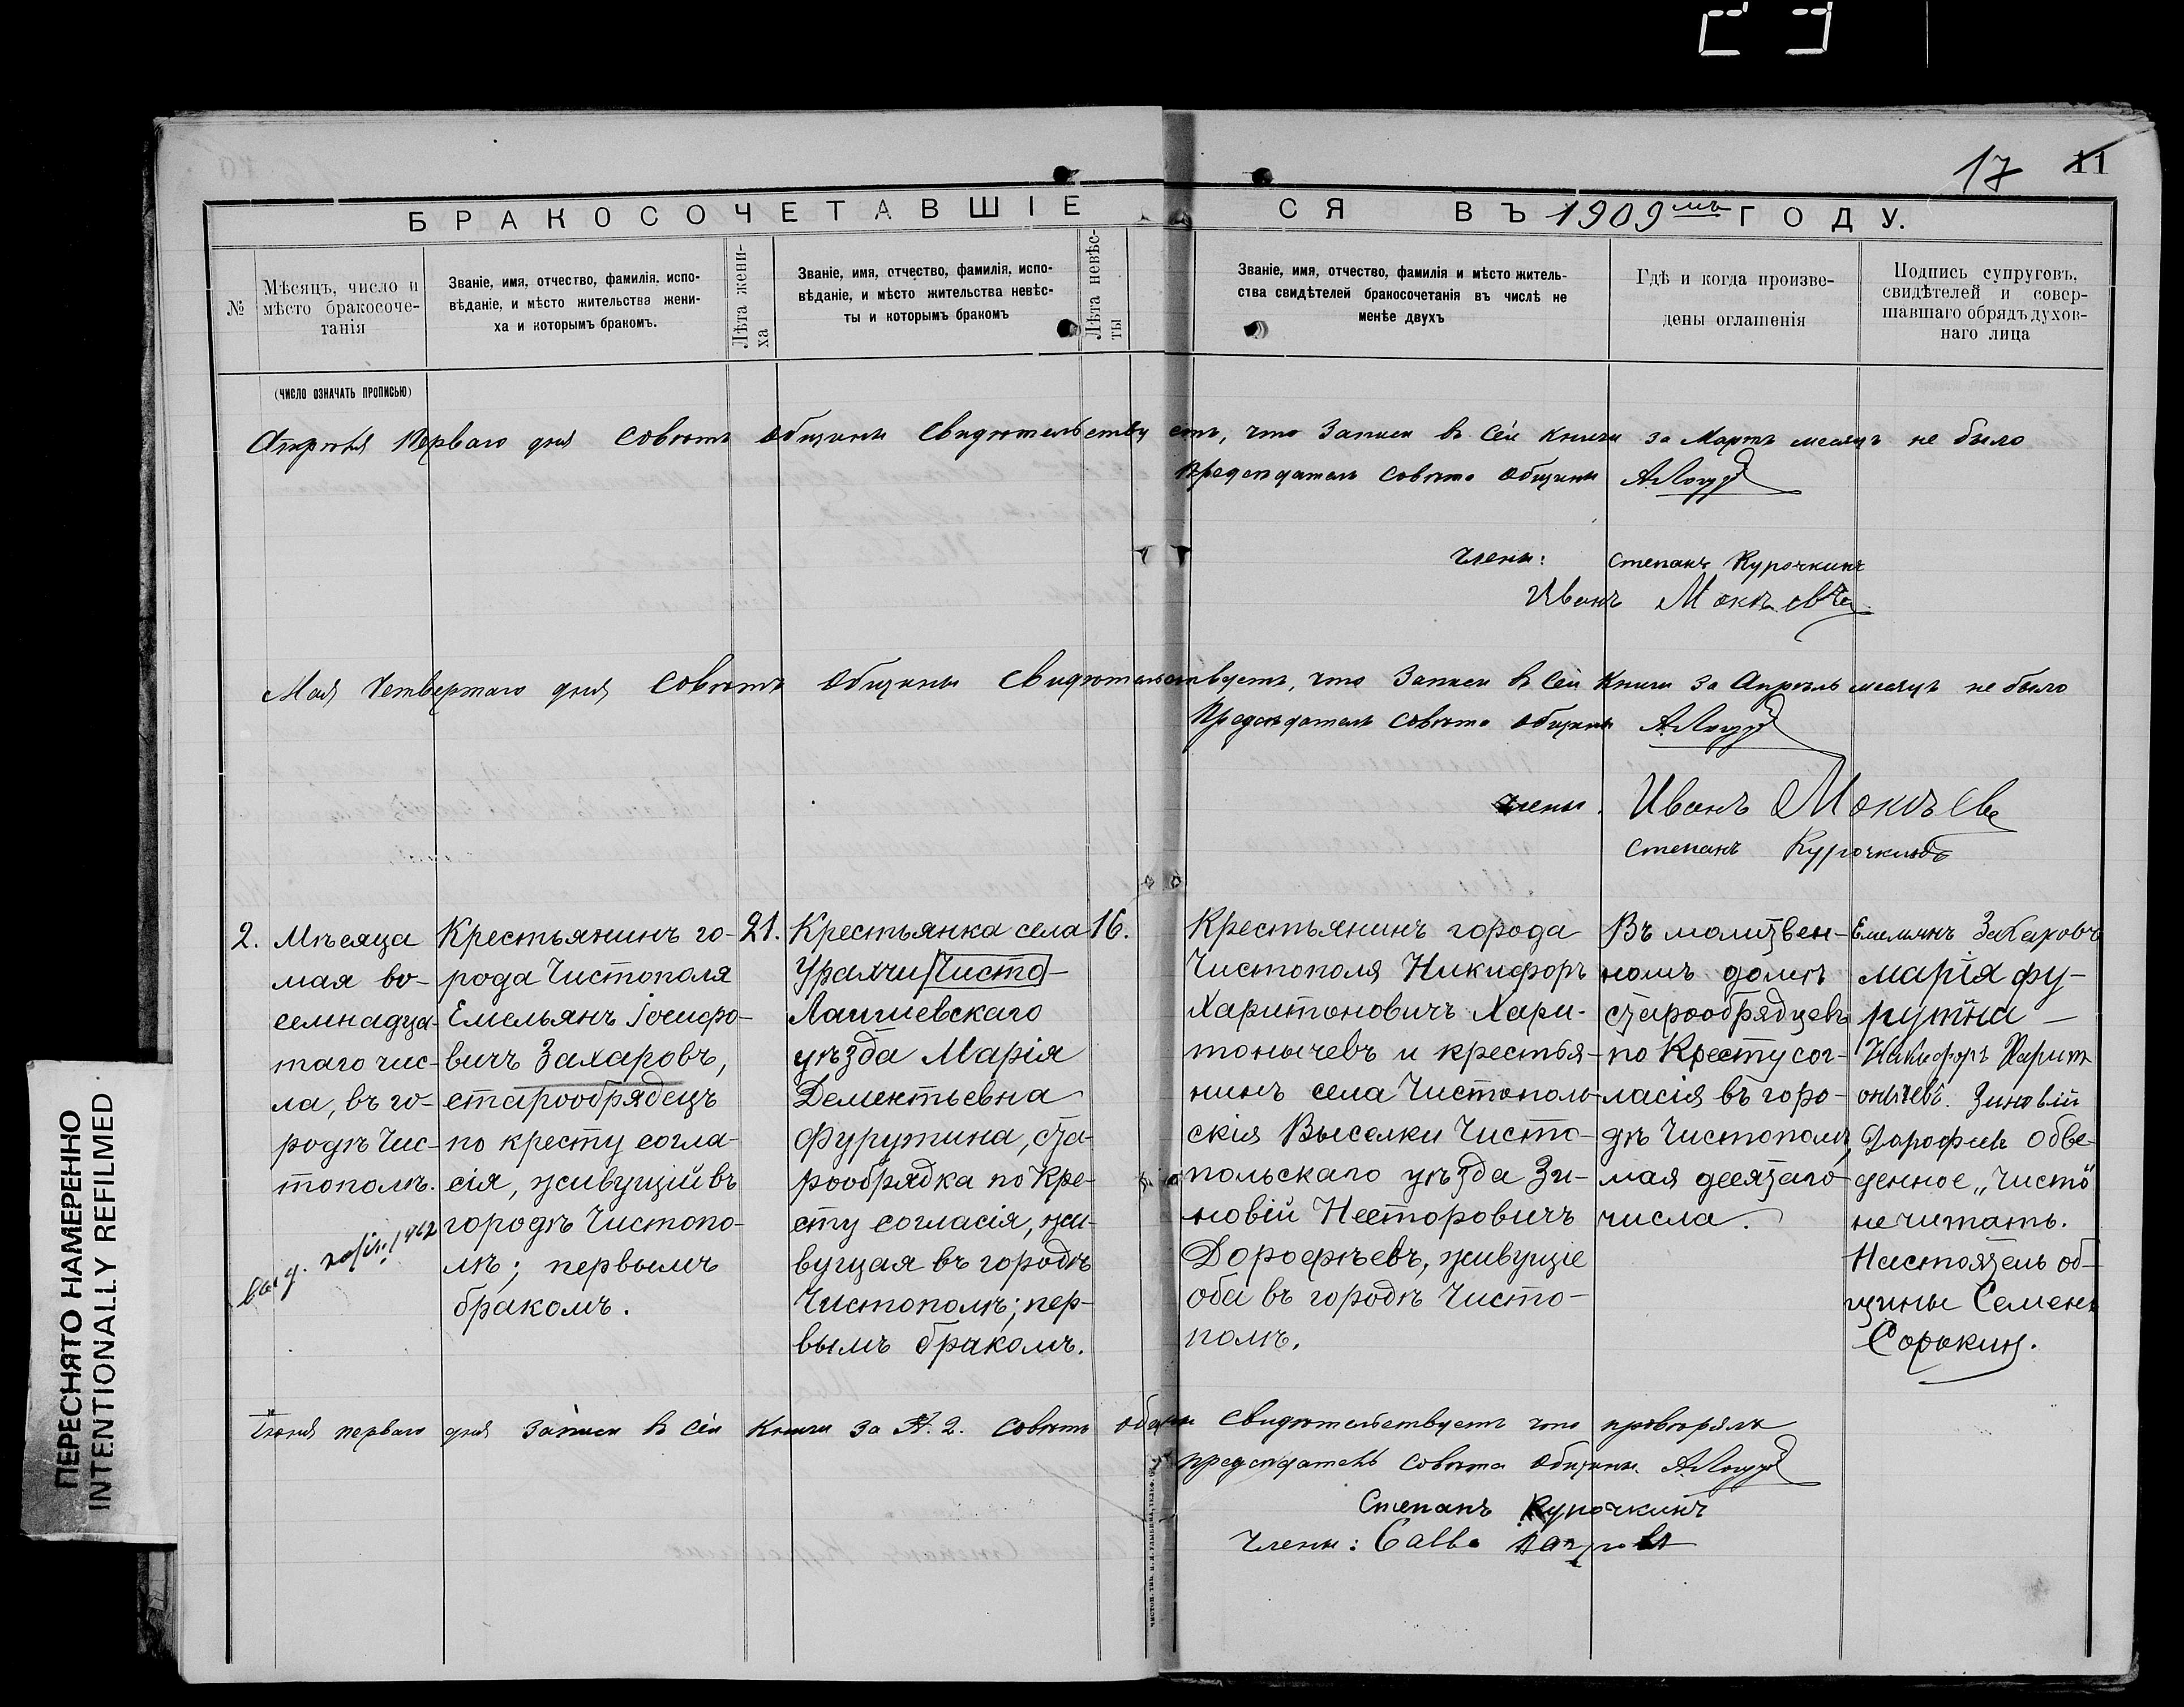 17 11
БРАКОСОЧЕТАВШІЕСЯ ВЪ 1909мъ ГОДУ.
№
Мѣсяцъ, число и
мѣсто бракосоче-
танія
(ЧИСЛО ОЗНАЧАТЬ ПРОПИСЬЮ)
Званіе, имя, отчество, фамилія, испо-
вѣданіе, и мѣсто жительства жени-
ха и которымъ бракомъ.
Лѣта жени-
ха
Званіе, имя, отчество, фамилія, испо-
вѣданіе, и мѣсто жительства невѣс-
ты и которымъ бракомъ
Лѣта невѣс-
ты
Званіе, имя, отчество, фамилія и мѣсто житель-
ства свидѣтелей бракосочетанія въ числѣ не
менѣе двухъ
Гдѣ и когда произве-
дены оглашенія
Подпись супруговъ,
свидѣтелей и совер-
шавшаго обрядъ духов-
наго лица
Апрѣля Перваго дня Совѣтъ Общины Свидѣтельствуетъ, что Записи въ Сей Книги за Мартъ месяцъ не было
Предсѣдатель Совѣта Общины
Члены: Степанъ Курочкинъ
Иванъ Мокѣевъ
Мая Четвертаго дня Совѣтъ Общины Свидѣтельствуетъ, что Записи въ Сей Книги за Апрѣль месяцъ не было
Предсѣдатель Совѣта Общины
члены. Иванъ Мокѣевъ
Степанъ Курочкинъ
2.
Мѣсяца
мая во-
семнадца-
таго чис-
ла, въ го-
родѣ Чис-
тополѣ.
Крестьянинъ го-
рода Чистополя
Емельянъ Іосифо-
вичъ Захаровъ,
старообрядецъ
по кресту согла-
сія, живущій въ
городѣ Чистопо-
лѣ; первымъ
бракомъ.
21.
Крестьянка села
Урахчи Чисто-
Лаишевскаго
уѣзда Марія
Дементьевна
Фурутина, ста-
рообрядка по Кре-
сту согласія, жи-
вущая въ городѣ
Чистополѣ; пер-
вымъ бракомъ.
16.
Крестьянинъ города
Чистополя Никифоръ
Харитоновичъ Хари-
тонычевъ и крестья-
нинъ села Чистополь-
скія Выселки Чисто-
польскаго уѣзда Зи-
новій Несторовичъ
Дорофѣевъ, живущіе
оба въ городѣ Чисто-
полѣ.
Въ молитвен-
номъ домѣ
старообрядцевъ
по Кресту сог-
ласія въ горо-
дѣ Чистополѣ,
мая десятаго
числа.
Емельянъ Захаровъ
марія фу-
рутина
Никифоръ Харит
онычевъ. Зиновій
Дарофеевъ Обве-
денное „Чисто"
не читать.
Настоятель об-
щины Семенъ
Сорокин.
Іюня перваго дня Записи въ Сей Книги за №. 2. Совѣтъ общины Свидѣтельствуетъ что провѣрялъ
предсѣдатель Совѣта Общины
Степанъ Курочкинъ
Члены:
ПЕРЕСНЯТО НАМЕРЕННО
INTENTIONALLY REFILMED